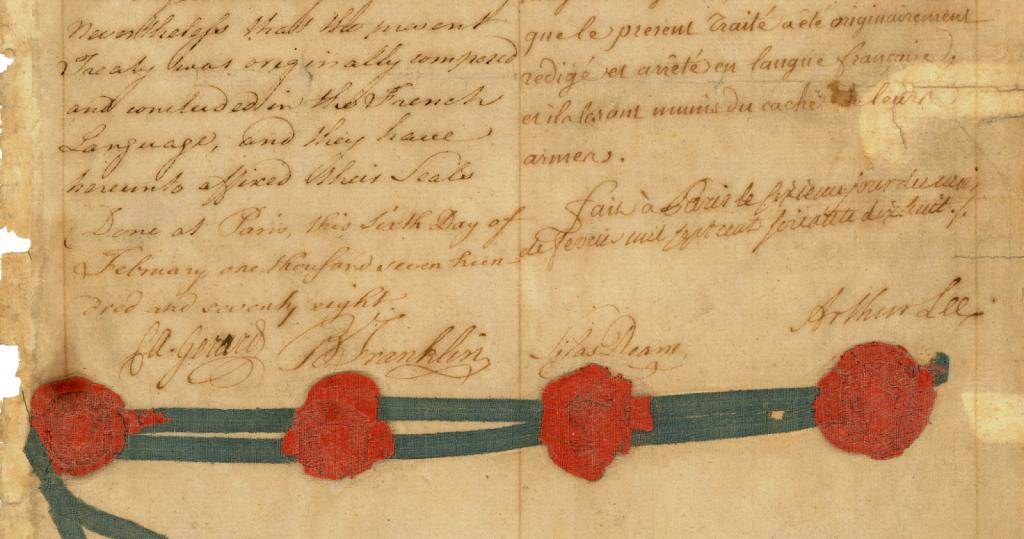 Nevertheless that the present
Treaty was originally composed
and concluded in the French
Language, and they have
hereunto affixed their Seals
Done at Paris, this sixth Day of
February one thousand seven hun
dred and seventy eight.
que le present Traité a été originairement
redigé et arrêté en langue françoise,
et ils les ont munis du cachet de leurs
armes.
fait à Paris le sixieme jour du mois
de fevrier mil sept cent soixante dix huit.
CA. Gerard
B Franklin
Silas Deane
Arthur Lee